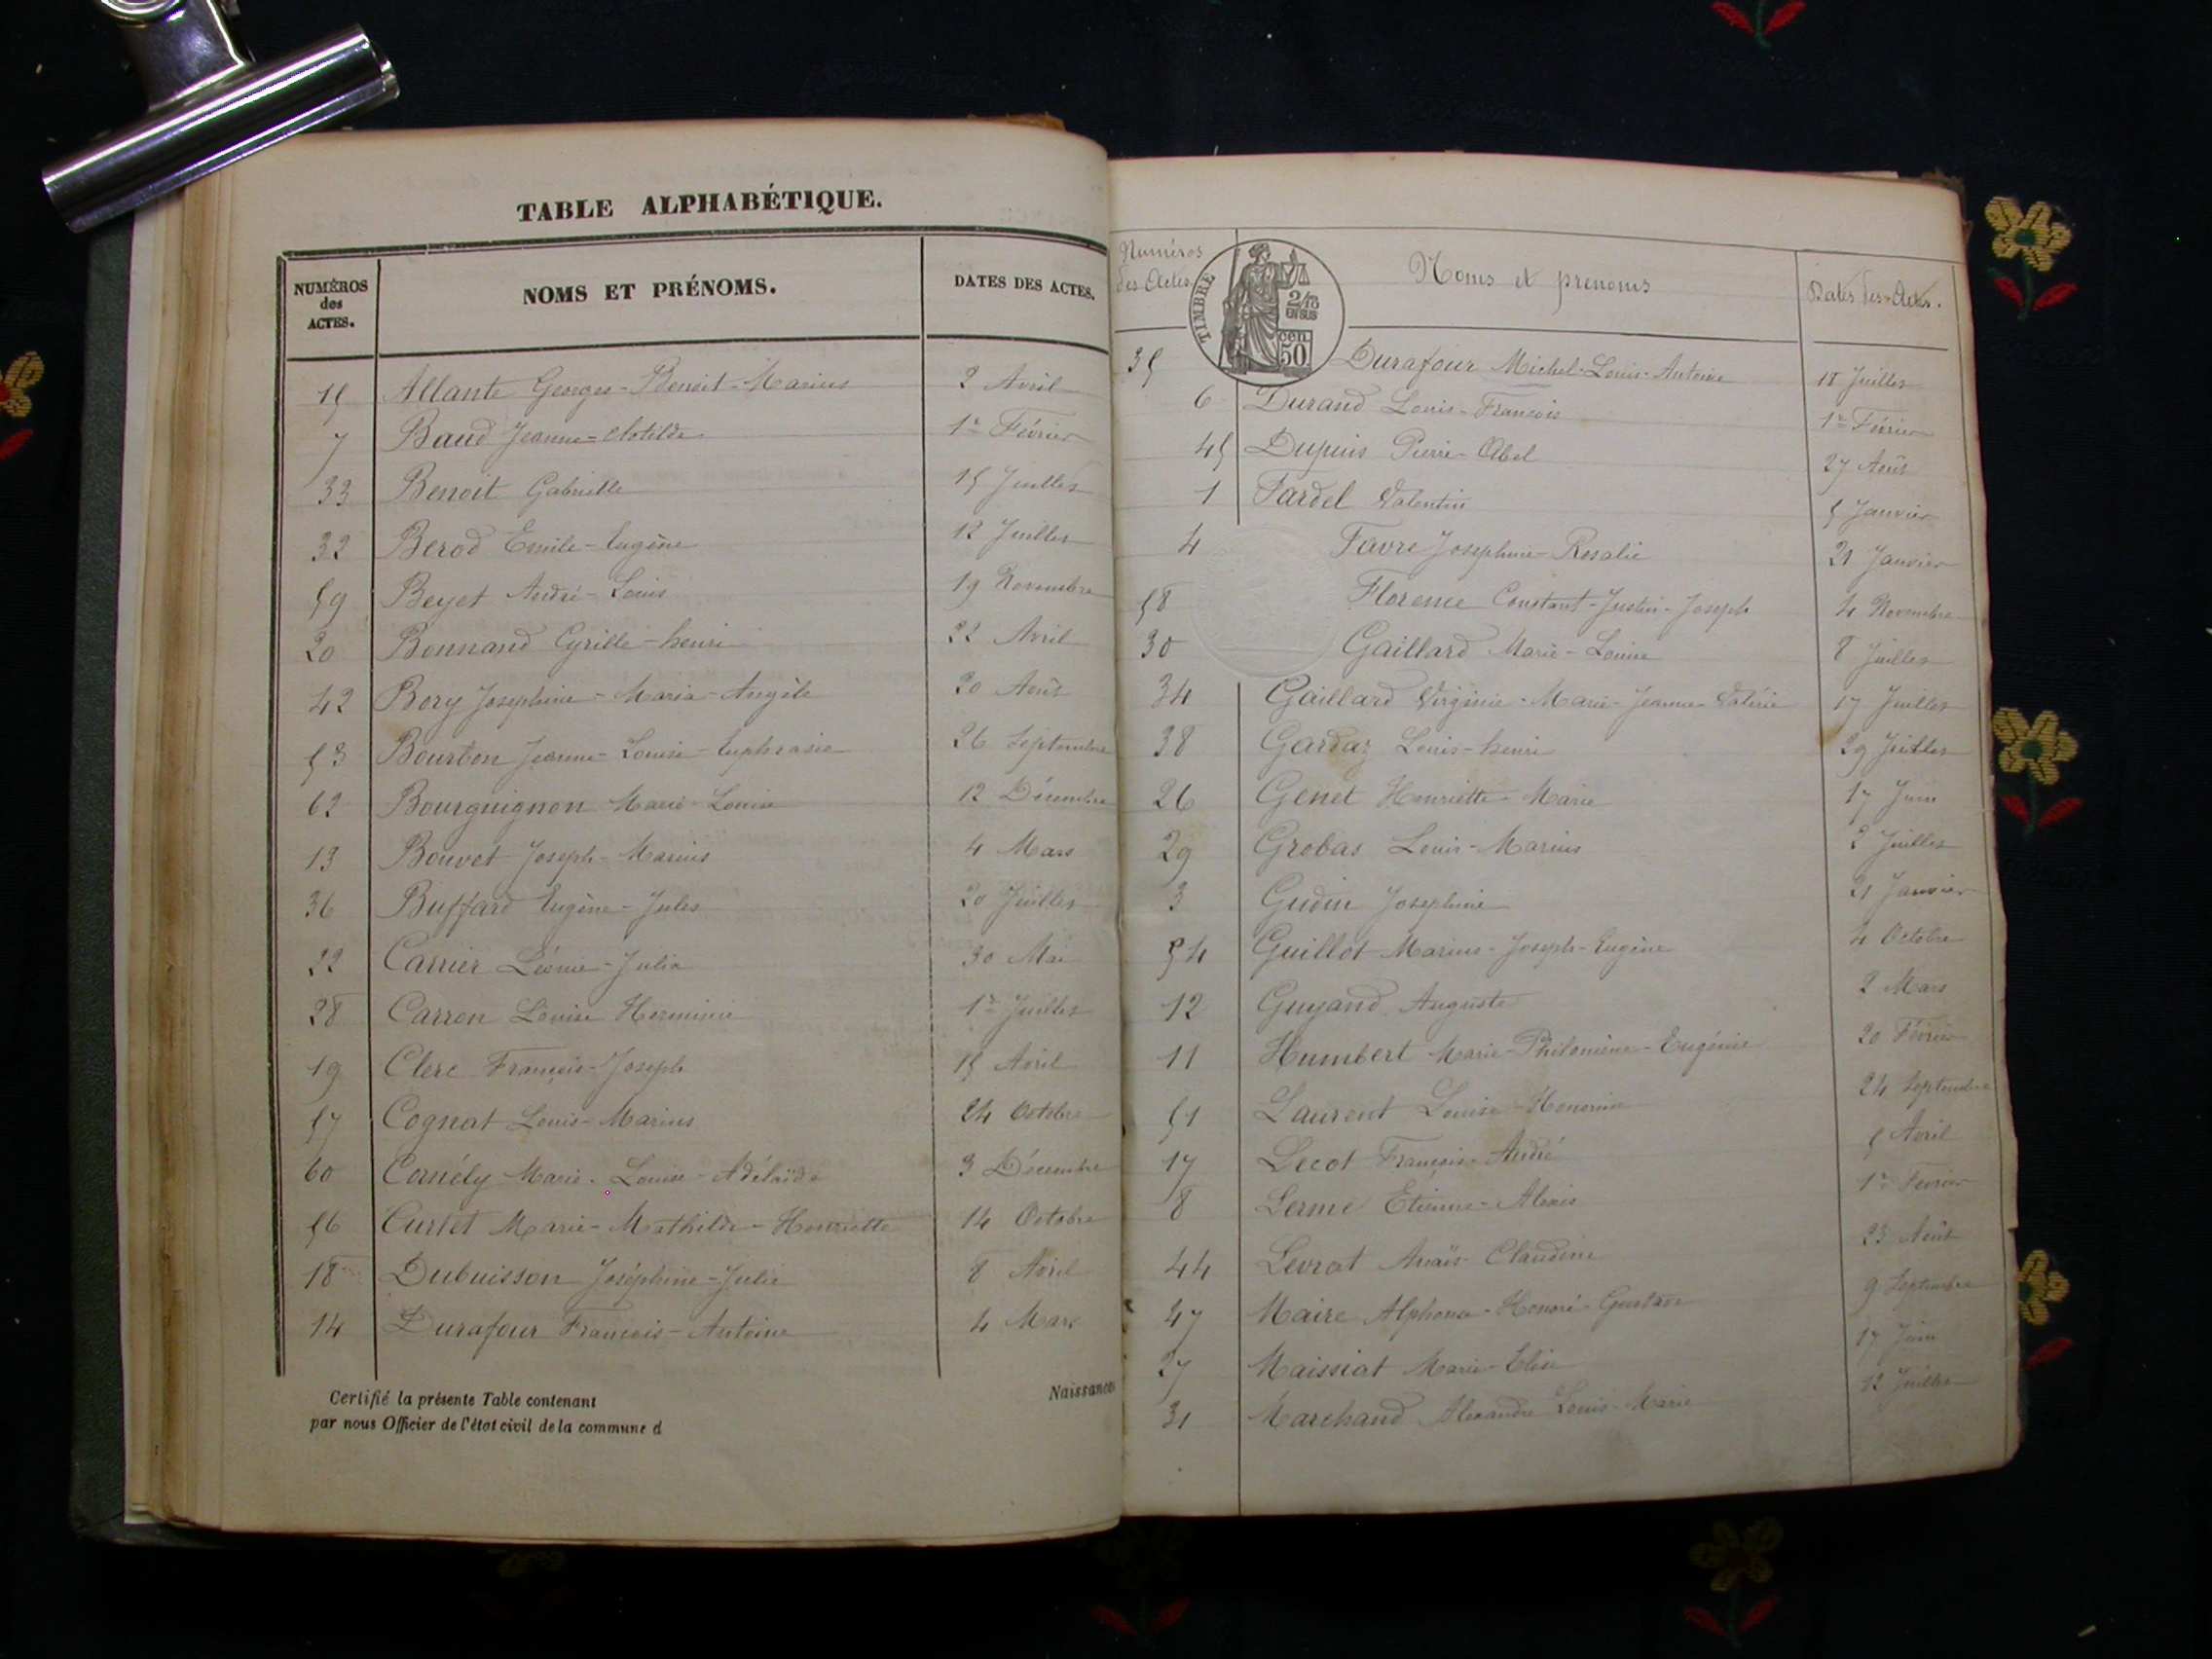 TABLE ALPHABÉTIQUE.
NUMÉROS des ACTES. NOMS ET PRÉNOMS. DATES DES ACTES.
15 Allante Georges-Benoit-Marius 2 Avril
7 Baud Jeanne-Clotilde 1er Février
33 Benoit Gabrielle 15 Juillet
32 Berod Emile-Eugène 12 Juillet
59 Beyet André-Louis 19 Novembre
20 Bonnand Cyrille-henri 22 Avril
42 Bory Joséphine-Maria-Angèle 20 Août
53 Bourbon Jeanne-Louise-Euphrasie 26 Septembre
62 Bourguignon Marie-Louise 12 Décembre
13 Bouvet Joseph-Marius 4 Mars
36 Buffard Eugène-Jules 20 Juillet
22 Carrier Léonie-Julia 30 Mai
28 Carron Louise Herminie 1er Juillet
19 Clerc François-Joseph 15 Avril
57 Cognat Louis-Marius 24 Octobre
60 Cornély Marie-Louise-Adélaïde 3 Décembre
56 Curtet Marie-Mathilde-Henriette 14 Octobre
18 Dubuisson Joséphine-Julie 8 Avril
14 Durafour François-Antoine 4 Mars
Certifié la présente Table contenant Naissances
par nous Officier de l'état civil de la commune d
Numéros des Actes Noms et prenoms Dates des Actes.
TIMBRE 2/10 EN SUS 50 cen.
35 Durafour Michel-Louis-Antoine 18 Juillet
6 Durand Louis-François 1er Février
45 Dupuis Pierre-Abel 27 Août
1 Fardel Valentin 5 Janvier
4 Favre Josephine-Rosalie 21 Janvier
58 Florence Constant-Justin-Joseph 4 Novembre
30 Gaillard Marie-Louise 8 Juillet
34 Gaillard Virginie-Marie-Jeanne-Valérie 17 Juillet
38 Gardaz Louis-henri 29 Juillet
26 Genet Henriette-Marie 17 Juin
29 Grobas Louis-Marius 2 Juillet
3 Gudin Josephine 21 Janvier
54 Guillot Marius-Joseph-Eugène 4 Octobre
12 Guyand Auguste 2 Mars
11 Humbert Marie-Philomène-Eugénie 20 Février
51 Laurent Louise-Honorine 24 Septembre
17 Lecot François-André 5 Avril
8 Lerme Etienne-Alexis 1er Février
44 Levrat Anaïs-Claudine 23 Août
47 Maire Alphonse-Honoré-Gustave 9 Septembre
27 Maissiat Marie-Elise 17 Juin
31 Marchand Alexandre Louis-Marie 12 Juillet